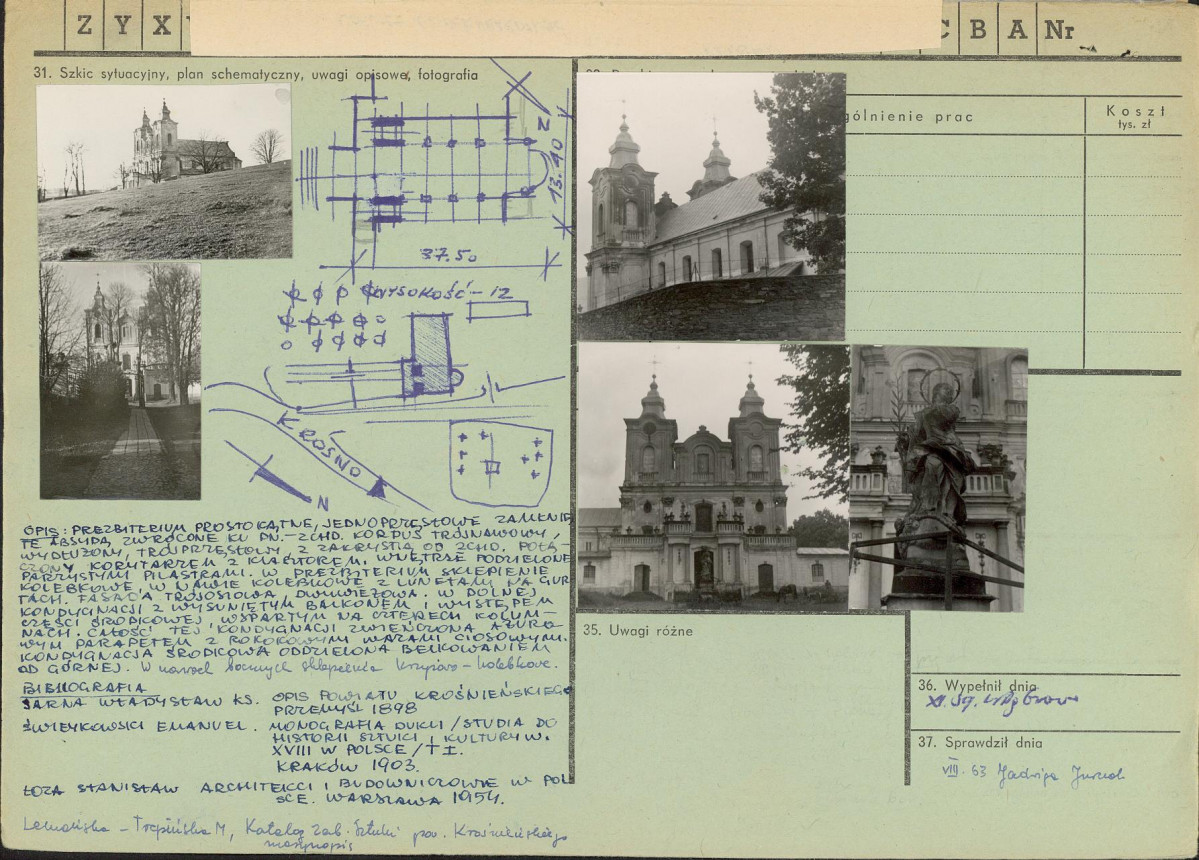 Z Y X
C B A Nr
31. Szkic sytuacyjny, plan schematyczny, uwagi opisowe, fotografia
gólnienie prac
Koszt
tys. zł
N
13.40
37.50
WYSOKOŚĆ - 12
KROŚNO
N
OPIS: PREZBITERIUM PROSTOKĄTNE, JEDNOPRZĘSŁOWE ZAMKNIĘ
TE ABSYDĄ, ZWRÓCONE KU PN.-ZCHD. KORPUS TRÓJNAWOWY,
WYDŁUŻONY, TRÓJPRZĘSŁOWY, Z ZAKRYSTIĄ OD ZCHD. POŁĄ-
CZONY KORYTARZEM Z KLASZTOREM. WNĘTRZE PODZIELONE
PARZYSTYMI PILASTRAMI. W PREZBITERIUM SKLEPIENIE
KOLEBKOWE, W NAWIE KOLEBKOWE Z LUNETAMI NA GUR
TACH. FASADA TRÓJOSIOWA, DWUWIEŻOWA. W DOLNEJ
KONDYGNACJI Z WYSUNIĘTYM BALKONEM I WYSTĘPEM
CZĘŚCI ŚRODKOWEJ, WSPARTYM NA CZTERECH KOLUM-
NACH. CAŁOŚĆ TEJ KONDYGNACJI ZWIEŃCZONA AŻURO-
WYM PARAPETEM Z ROKOKOWYMI WAZAMI CIOSOWYMI.
KONDYGNACJA ŚRODKOWA ODDZIELONA BELKOWANIEM
OD GÓRNEJ. W nawach bocznych sklepienia krzyżowo-kolebkowe.
BIBLIOGRAFIA
SARNA WŁADYSŁAW KS. OPIS POWIATU KROŚNIEŃSKIEGO
PRZEMYŚL 1898
ŚWIEYKOWSKI EMANUEL. MONOGRAFIA DUKLI /STUDIA DO
HISTORII SZTUKI I KULTURY W.
XVIII W POLSCE/ T I.
KRAKÓW 1903.
ŁOZA STANISŁAW ARCHITEKCI I BUDOWNICZOWIE W POL
SCE. WARSZAWA 1954.
Trepińska M, Katalog Zab. Sztuki pow. Krośnieńskiego
maszynopis
35. Uwagi różne
36. Wypełnił dnia
XI.59.
37. Sprawdził dnia
VIII. 63 Jadwiga